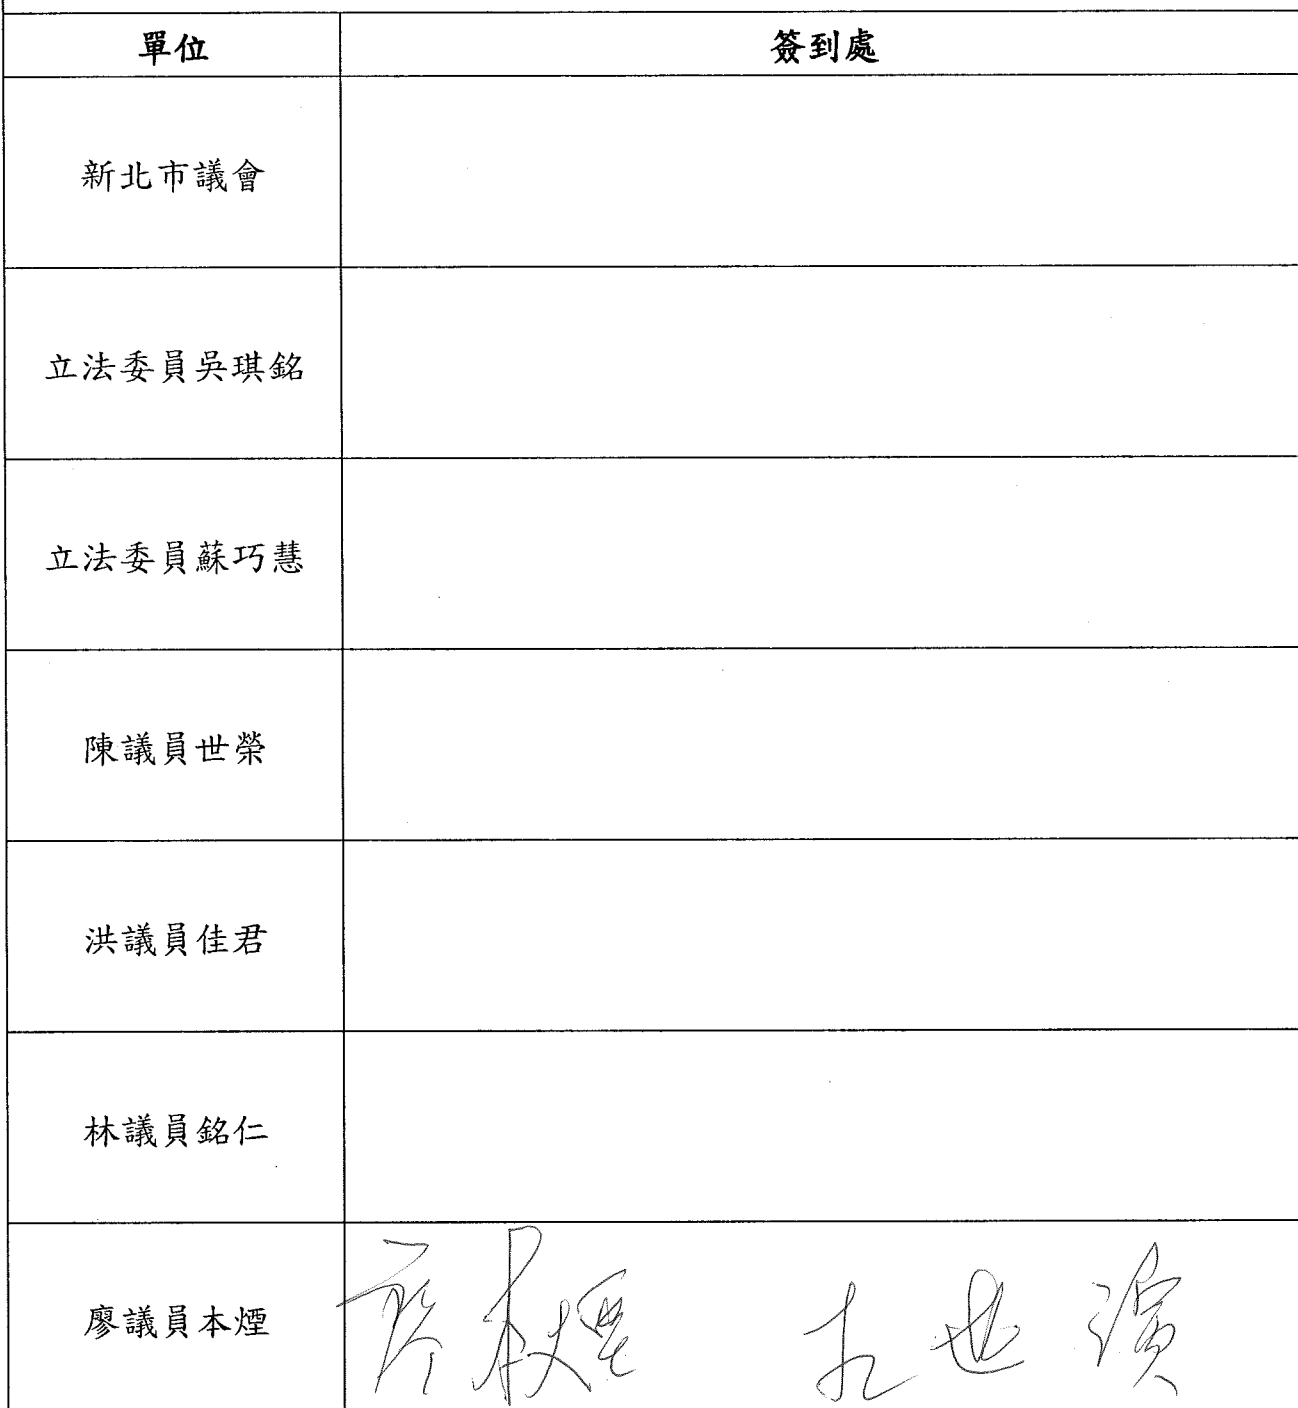 單位 簽到處
新北市議會
立法委員吳琪銘
立法委員蘇巧慧
陳議員世榮
洪議員佳君
林議員銘仁
廖議員本煙 廖本煙